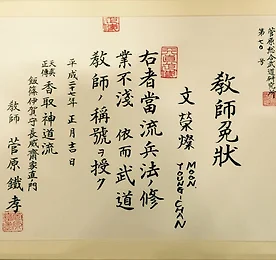 菅原総合武道研究所
第七〇号
教師免状
文榮燦
MOON YOUNG-CHAN
右者當流兵法ノ修
業不淺 依而武道
教師ノ稱號ヲ授ク
平成二十七年 正月吉日
天真正傳 香取神道流
飯篠伊賀守長威齋家直門
教師 菅原鐵孝